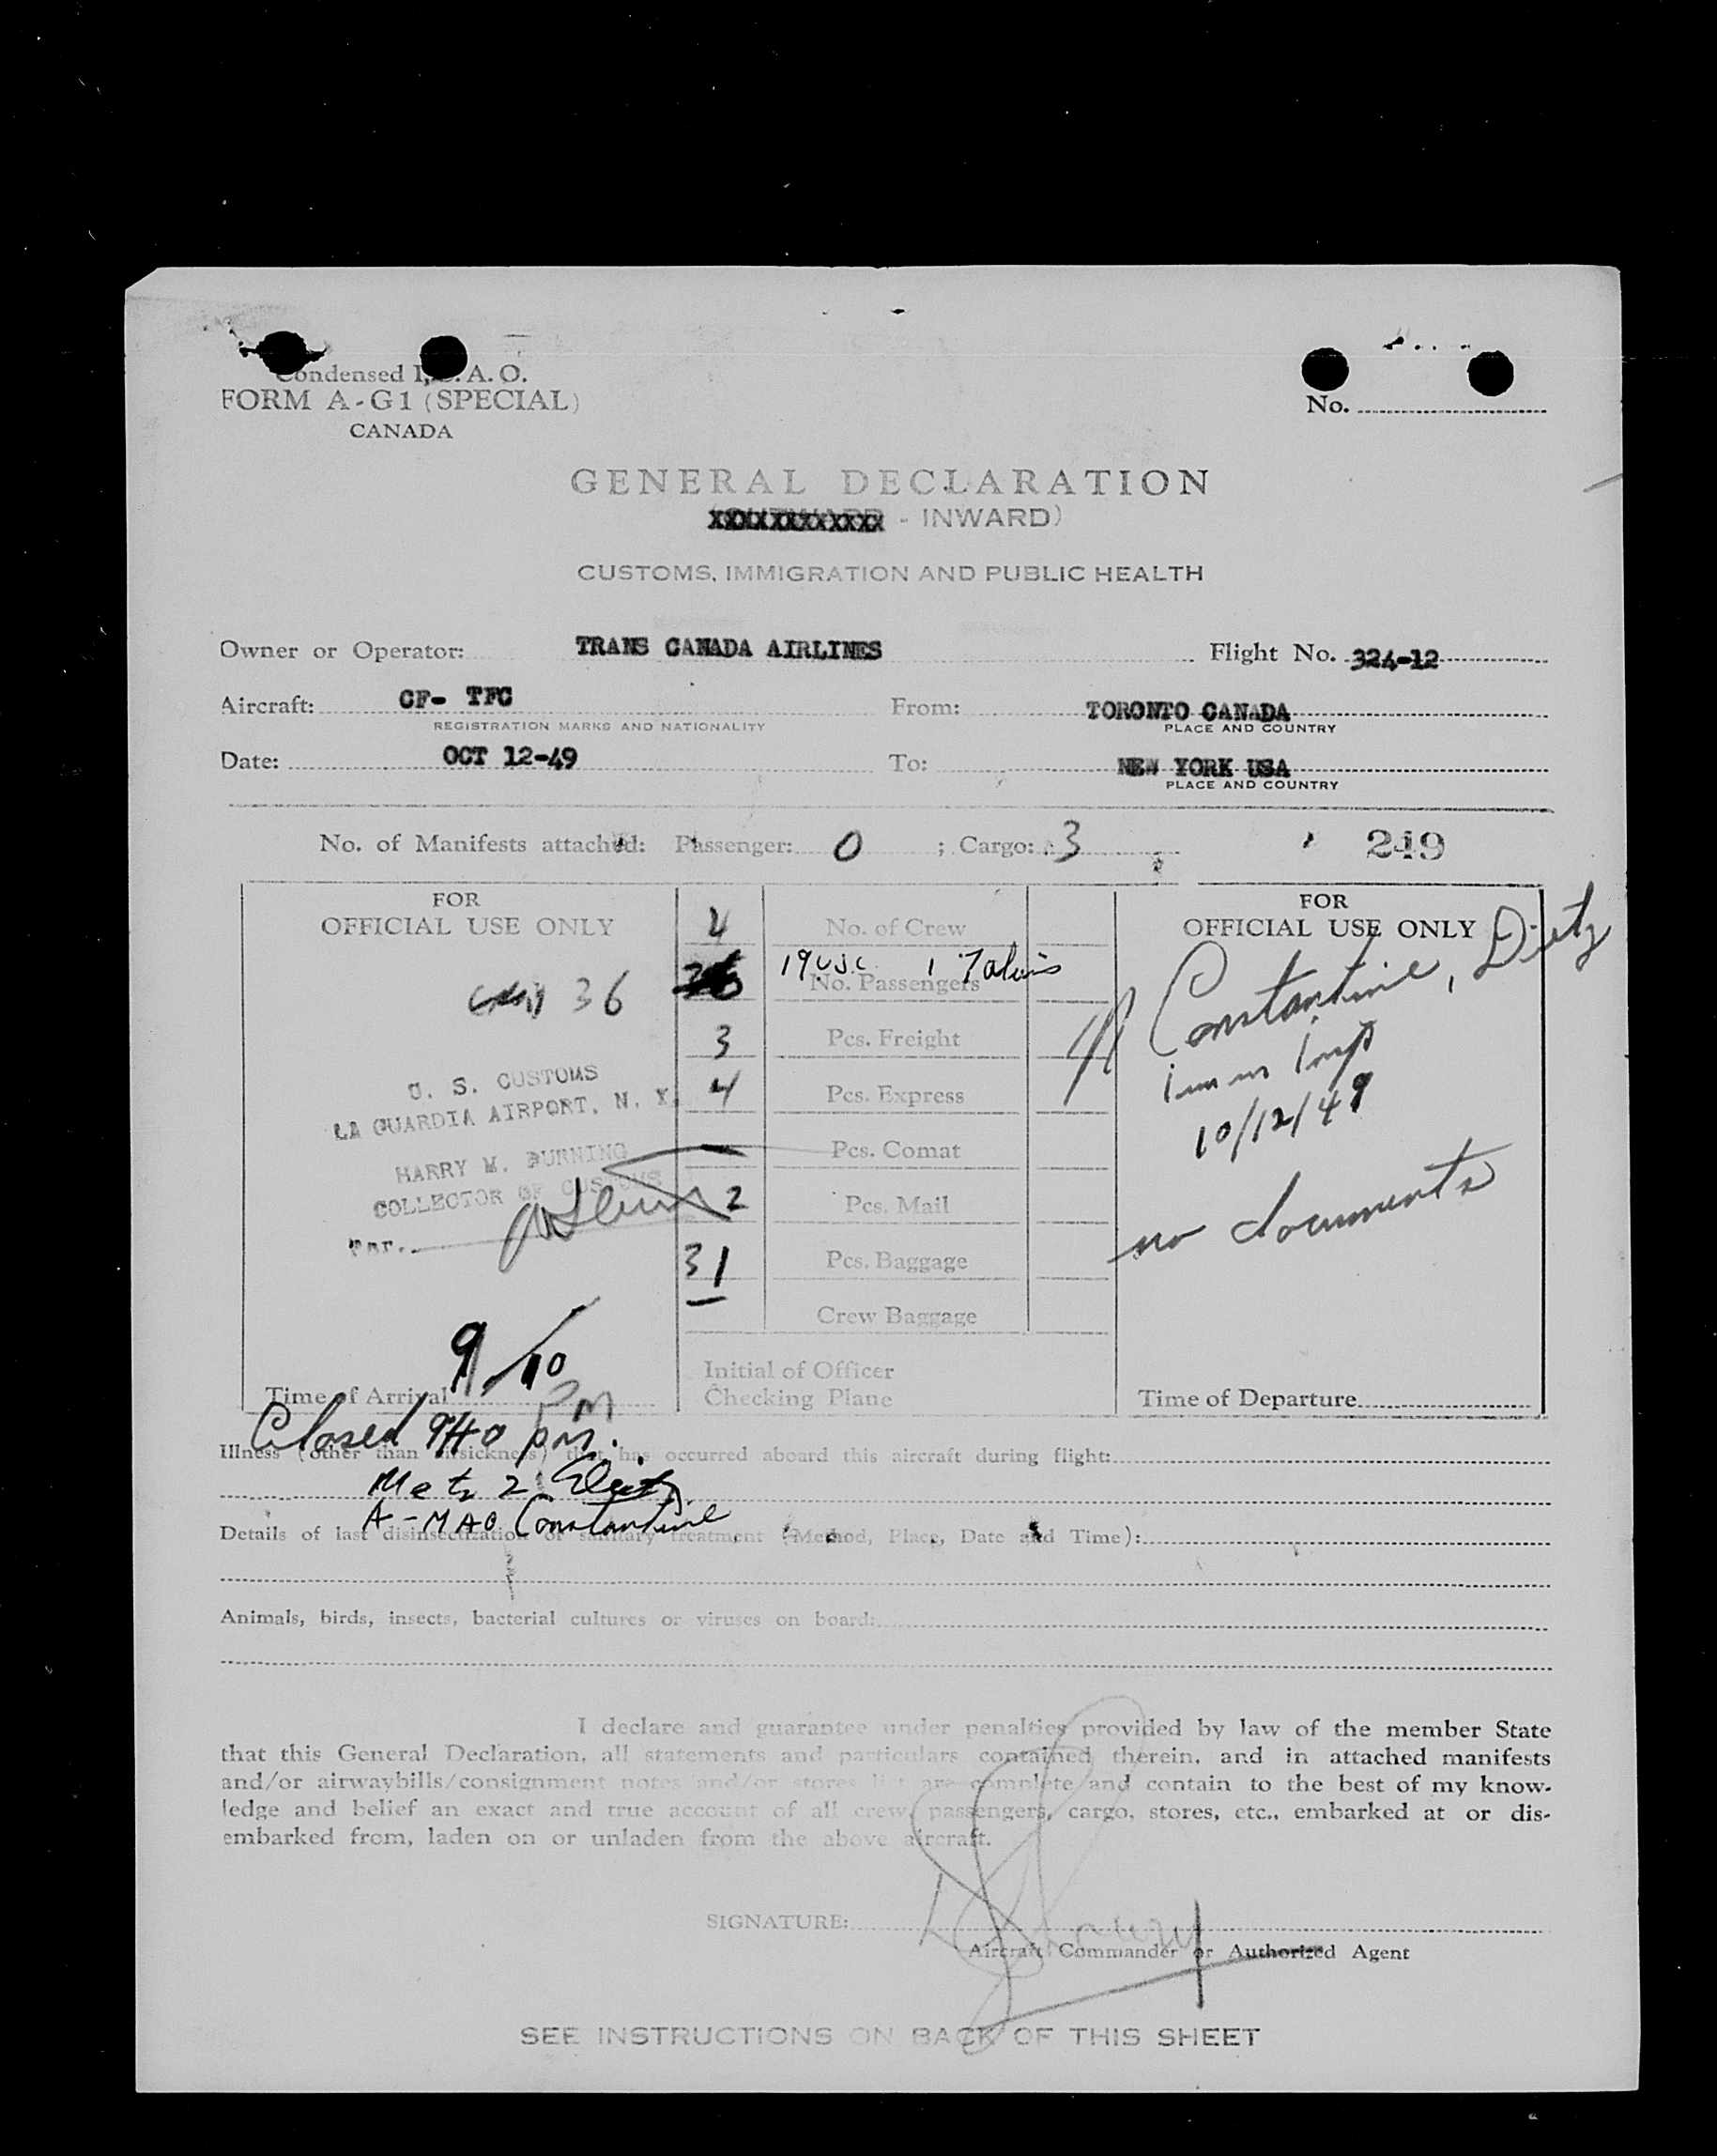 Condensed I.C.A.O.
FORM A-G1 (SPECIAL)
CANADA
No.
GENERAL DECLARATION
XXXXXXXXXXXXX - INWARD)
CUSTOMS, IMMIGRATION AND PUBLIC HEALTH
Owner or Operator: TRANS CANADA AIRLINES Flight No. 324-12
Aircraft: CF- TFC From: TORONTO CANADA
REGISTRATION MARKS AND NATIONALITY PLACE AND COUNTRY
Date: OCT 12-49 To: NEW YORK USA
PLACE AND COUNTRY
No. of Manifests attached: Passenger: 0 ; Cargo: 3 249
FOR
OFFICIAL USE ONLY
36
U. S. CUSTOMS
LA GUARDIA AIRPORT, N. Y.
HARRY M. DURNING
COLLECTOR OF CUSTOMS
Per.
9/10
PM
Time of Arrival
4 No. of Crew
19 U.S.C. 1
No. Passengers
3 Pcs. Freight
4 Pcs. Express
Pcs. Comat
2 Pcs. Mail
31 Pcs. Baggage
Crew Baggage
Initial of Officer
Checking Plane
FOR
OFFICIAL USE ONLY
Constantine, Dietz
Imm Insp
10/12/49
no documents
Time of Departure
Closed 940 pm.
Illness (other than airsickness) that has occurred aboard this aircraft during flight:
Metz 2
A-MAO Constantine
Details of last disinsectization or sanitary treatment (Method, Place, Date and Time):
Animals, birds, insects, bacterial cultures or viruses on board:
I declare and guarantee under penalties provided by law of the member State
that this General Declaration, all statements and particulars contained therein, and in attached manifests
and/or airwaybills/consignment notes and/or stores list are complete and contain to the best of my know-
ledge and belief an exact and true account of all crew, passengers, cargo, stores, etc., embarked at or dis-
embarked from, laden on or unladen from the above aircraft.
SIGNATURE:
Aircraft Commander or Authorized Agent
SEE INSTRUCTIONS ON BACK OF THIS SHEET